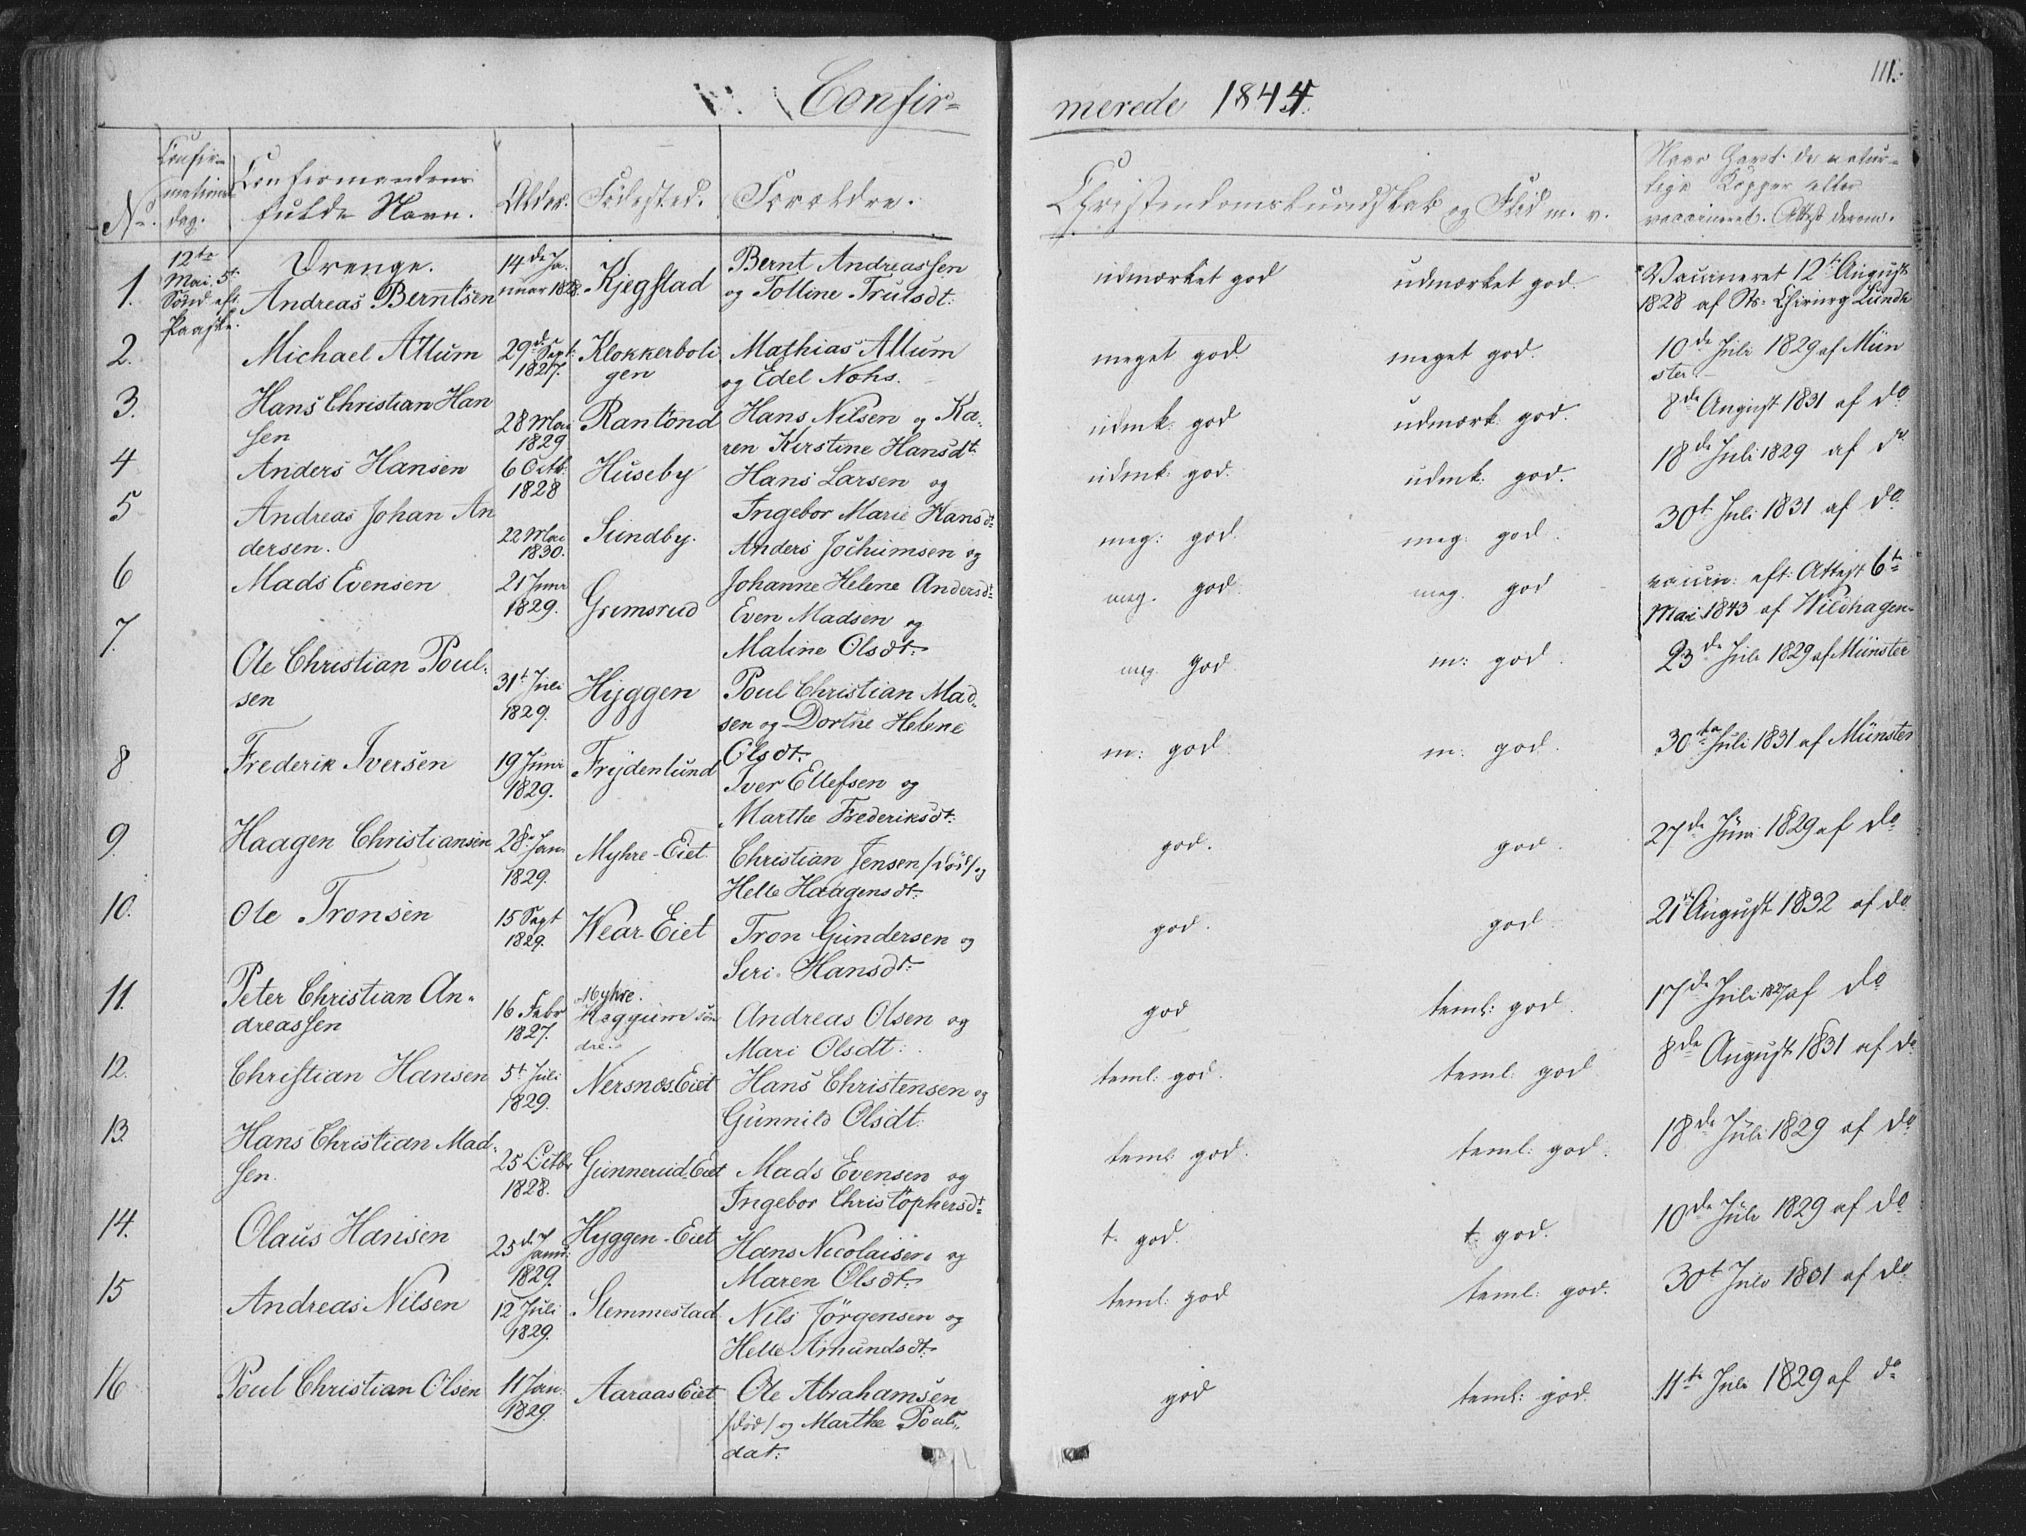 Confir-
merede 1844.
111.
No.
Confir-
mations
dag.
Confirmandens
fulde Navn.
Alder.
Födested.
Forældre.
Christendomskundskab og Flid m. v.
Naar havt de natur-
lige Kopper eller
vaccineret. Attest derom.
12te
Mai 5t
Sönd. eft.
Paaske.
Drenge.
1. Andreas Berntsen 14de Ja-
nuar 1828. Kjegstad Bernt Andreassen
og Tolline Trulsdt:
udmærket god udmærket god. Vaccineret 12t August
1828 af Chirurg Lunde
2. Michael Allum 29de Sept:
1827. Klokkerboli
gen Mathias Allum
og Edel Nohs.
meget god meget god. 10de Juli 1829 af Mün
ster
3. Hans Christian Han
sen 28 Mai
1829 Rantond Hans Nilsen og Ka-
ren Kirstine Hansdt:
udmk: god udmærk: god. 8de August 1831 af do
4 Anders Hansen 6 Octb:
1828 Huseby Hans Larsen og
Ingebor Marie Hansdt:
udmk: god. udmk: god. 18de Juli 1829 af do
5 Andreas Johan An
dersen. 22 Mai
1830. Sundby. Anders Jochumsen og
Johanne Helene Andersdt:
meg: god meg: god. 30t Juli 1831 af do
6 Mads Evensen 21 Juni
1829. Grimsrud Even Madsen og
Maline Olsdt:
meg. god meg. god vaccin: eft: Attest 6te
Mai 1843 af Wildhagen
7. Ole Christian Poul-
sen 31t Juli
1829. Hyggen Poul Christian Mad-
sen og Dorthe Helene
Olsdt:
meg. god m: god. 23de Juli 1829 af Münster
8 Frederik Iversen 19 Juni
1829. Frydenlund Iver Ellefsen og
Marthe Frederiksdt:
m: god m: god. 30te Juli 1831 af Münster
9. Haagen Christiansen 28. Jan:
1829. Myhre-Eiet Christian Jensen /död/ og
Helle Haagensdt:
god. god. 27de Juni 1829 af do
10. Ole Tronsen 15 Sept
1829. Wear-Eiet Tron Gundersen og
Siri Hansdt:
god. god 21t August 1832 af do
11. Peter Christian An-
dreassen 16 Febr
1827. Myhre.
dre. Andreas Olsen og
Mari Olsdt:
god teml: god. 17de Juli 1827 af do
12. Christian Hansen 5t Juli
1829. Nersnæs Eiet Hans Christensen og
Gunnild Olsdt:
teml: god. teml: god 8de August 1831 af do
13. Hans Christian Mad-
sen. 25 Octbr
1828. Gunnerud-Eiet Mads Evensen og
Ingebor Christophersdt:
teml: god. teml: god. 18de Juli 1829 af do
14. Olaus Hansen 25de Janu:
1829. Hyggen-Eiet Hans Nicolaisen og
Maren Olsdt:
t. god. t. god. 10de Juli 1829 af do
15 Andreas Nilsen 12 Juli
1829. Slemmestad Nils Jörgensen og
Helle Amundsdt:
teml: god teml: god. 30t Juli 1831 af do
16 Poul Christian Olsen 11 Jan:
1829. Aaraas Eiet Ole Abrahamsen
/död/ og Marthe Pouls-
dat:
god teml: god. 11te Juli 1829 af do